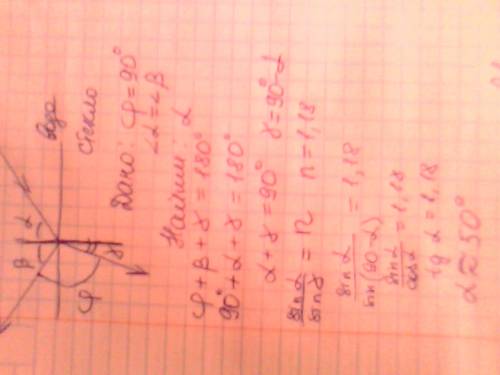 вода
стекло
β
α
γ
φ
Дано: φ=90°
∠α=∠β
Найти: α
φ+β+γ=180°
90°+α+γ=180°
α+γ=90° γ=90°-α
sinα/sinγ = n n=1,18
sinα/sin(90-α) = 1,18
sinα/cosα = 1,18
tg α=1,18
α≈50°